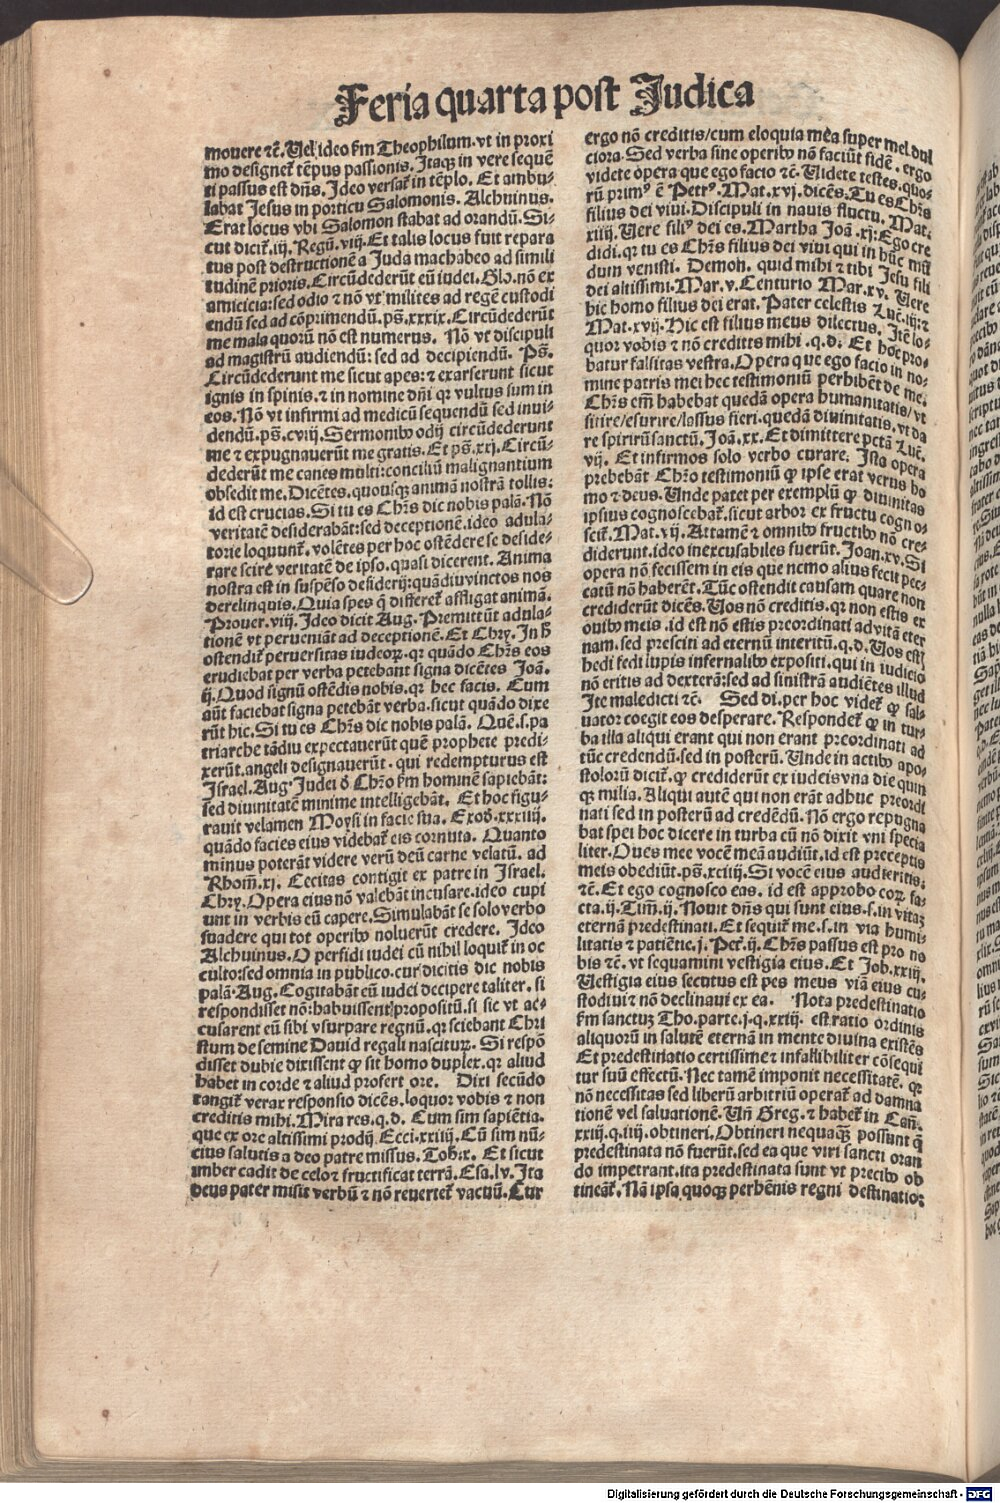 Feria quarta post Judica
mouere ⁊c̃. Uel ideo fm̃ Theophilum. vt in proxi
mo designet̃ tẽpus passionis. Itaqꝫ in vere sequẽ
ti passus est dñs. Ideo versat̃ in tẽplo. Et ambu⸗
labat Jesus in porticu Salomonis. Alchuinus.
Erat locus vbi Salomon stabat ad orandũ. Si⸗
cut dicit̃. iij. Regũ. viij. Et talis locus fuit repara
tus post destructionẽ a Juda machabeo ad simili
tudinẽ prioris. Circũdederũt eũ iudei. Glo. nõ ex
amicicia: sed odio ⁊ nõ vt milites ad regẽ custodi
endũ sed ad cõprimendũ. ps̃. xxxix. Circũdederũt
me mala quorũ nõ est numerus. Nõ vt discipuli
ad magistrũ audiendũ: sed ad decipiendũ. Ps̃.
Circũdederunt me sicut apes: ⁊ exarserunt sicut
ignis in spinis. ⁊ in nomine dñi qꝛ vultus sum in
eos. Nõ vt infirmi ad medicũ sequendũ sed inui⸗
dendũ. ps̃. cviij. Sermonibꝰ odij circũdederunt
me ⁊ expugnauerũt me gratis. Et ps̃. xxj. Circũ⸗
dederũt me canes multi: conciliũ malignantium
obsedit me. Dicẽtes. quousqꝫ animã nostrã tollis:
id est crucias. Si tu es Chr̃s dic nobis palã. Nõ
veritatẽ desiderabãt: sed deceptionẽ. ideo adula⸗
torie loquunt̃. volẽtes per hoc ostẽdere se deside⸗
rare scire veritatẽ de ipso. quasi dicerent. Anima
nostra est in suspẽso desiderij: quãdiu vinctos nos
derelinquis. Quia spes q̃ differet̃ affligat animã.
Prouer. viij. Ideo dicit Aug. Premittũt adula⸗
tionẽ vt perueniãt ad deceptionẽ. Et Chry. In h̃
ostendit̃ peruersitas iudeoꝝ. qꝛ quãdo Chr̃s eos
erudiebat per verba petebant signa dicẽtes Joã.
ij. Quod signũ ostẽdis nobis. qꝛ hec facis. Cum
aũt faciebat signa petebãt verba. sicut quãdo dixe
rũt hic. Si tu es Chr̃s dic nobis palã. Quẽ. s. pa
triarche tãdiu expectauerũt quẽ prophete predi⸗
xerũt. angeli designauerũt. qui redempturus est
Israel. Aug. Judei ð Chr̃o fm̃ hominẽ sapiebãt:
sed diuinitatẽ minime intelligebãt. Et hoc figu⸗
rauit velamen Moysi in facie sua. Exoð. xxxiiij.
quãdo facies eius videbat̃ eis cornuta. Quanto
minus poterãt videre verũ deũ carne velatũ. ad
Rhom̃. xj. Cecitas contigit ex parte in Israel.
Chry. Opera eius nõ valebãt incusare. ideo cupi
unt in verbis eũ capere. Simulabãt se solo verbo
suadere qui tot operibꝰ noluerũt credere. Ideo
Alchuinus. O perfidi iudei cũ nihil loquit̃ in oc
culto: sed omnia in publico. cur dicitis dic nobis
palã. Aug. Cogitabãt eũ iudei decipere taliter. si
respondisset nõ: habuissent propositũ. si sic vt ac⸗
cusarent eũ sibi vsurpare regnũ. qꝛ sciebant Chri
stum de semine Dauid regali nasciturꝝ. Si respõ
disset dubie dixissent ꝙ sit homo duplex. qꝛ aliud
habet in corde ⁊ aliud profert ore. Dixi secũdo
tangit̃ verax responsio dicẽs. loquor vobis ⁊ non
creditis mihi. Mira res. q. d. Cum sim sapiẽtia.
que ex ore altissimi prodij. Ecci. xxiiij. Cũ sim nũ⸗
cius salutis a deo patre missus. Tob̃. x. Et sicut
imber cadit de celo ⁊ fructificat terrã. Esa. lv. Ita
deus pater misit verbũ ⁊ nõ reuertet̃ vacuũ. Cur
ergo nõ creditis/cum eloquia mea super mel dul
ciora. Sed verba sine operibꝰ nõ faciũt fidẽ. ergo
videte opera que ego facio ⁊c̃. Videte testes. quo⸗
rũ primꝰ ẽ Petrꝰ. Mat. xvj. dicẽs. Tu es Chr̃s
filius dei viui. Discipuli in nauis fluctu. Mat.
xiiij. Uere filiꝰ dei es. Martha Joã. xj. Ego cre
didi. qꝛ tu es Chr̃s filius dei viui qui in hũc mũ
dum venisti. Demoñ. quid mihi ⁊ tibi Jesu fili
dei altissimi. Mar. v. Centurio Mar. xv. Uere
hic homo filius dei erat. Pater celestis Luc̃. iij. ⁊
Mat. xvij. Hic est filius meus dilectus. Itẽ lo⸗
quor vobis ⁊ nõ creditis mihi .q. d. Et hoc pro⸗
batur falsitas vestra. Opera que ego facio in no⸗
mine patris mei hec testimoniũ perhibẽt de me.
Chr̃s em̃ habebat quedã opera humanitatis/vt
sitire/esurire/lassus fieri. quedã diuinitatis. vt da
re spiritũ sanctũ. Joã. xx. Et dimittere pctã Luc̃.
vij. Et infirmos solo verbo curare. Ista opera
prebebãt Chr̃o testimoniũ ꝙ ipse erat verus ho
mo ⁊ deus. Unde patet per exemplũ ꝙ diuinitas
ipsius cognoscebat̃. sicut arbor ex fructu cogno⸗
scit̃. Mat. vij. Attamẽ ⁊ omnibꝰ fructibꝰ nõ cre⸗
diderunt. ideo inexcusabiles fuerũt. Joan. xv. Si
opera nõ fecissem in eis que nemo alius fecit pec⸗
catũ nõ haberẽt. Tũc ostendit causam quare non
crediderũt dicẽs. Uos nõ creditis. qꝛ non estis ex
ouibꝰ meis. id est nõ estis preordinati ad vitã eter
nam. sed presciti ad eternũ interitũ. q. d. Uos estį
hedi fedi lupis infernalibꝰ expositi. qui in iudicio
nõ eritis ad dexterã: sed ad sinistrã audiẽtes illud
Ite maledicti ⁊c̃. Sed di. per hoc videt̃ ꝙ sal⸗
uator coegit eos desperare. Respondet̃ ꝙ in tur⸗
ba illa aliqui erant qui non erant preordinati ad
tũc credendũ. sed in posterũ. Unde in actibꝰ apo⸗
stolorũ dicit̃. ꝙ crediderũt ex iudeis vna die quin
qꝫ milia. Aliqui autẽ qui non erãt adhuc preordi
nati sed in posterũ ad credẽdũ. Nõ ergo repugna
bat spei hoc dicere in turba cũ nõ dixit vni specia
liter. Oues mee vocẽ meã audiũt. id est preceptis
meis obediũt. ps̃. xciiij. Si vocẽ eius audieritis.
⁊c̃. Et ego cognosco eas. id est approbo coꝝ fa⸗
cta. ij. Tim̃. ij. Nouit dñs qui sunt eius. s. in vitaꝫ
eternã predestinati. Et sequũt̃ me. s. in via humi⸗
litatis ⁊ patiẽtie. j. Pet̃. ij. Chr̃s passus est pro no
bis ⁊c̃. vt sequamini vestigia eius. Et Job. xxiij.
Uestigia eius secutus est pes meus viã eius cu⸗
stodiui ⁊ nõ declinaui ex ea. Nota predestinatio
fm̃ sanctuꝫ Tho. parte. j. q. xxiij. est ratio ordinis
aliquorũ in salutẽ eternã in mente diuina existẽs
Et predestinatio certissime ⁊ infallibiliter cõsequi
tur suũ effectũ. Nec tamẽ imponit necessitatẽ. qꝛ
nõ necessitas sed liberũ arbitriũ operat̃ ad damna
tionẽ vel saluationẽ. Uñ Greg. ⁊ habet̃ in Cañ.
xxiij. q. iiij. obtineri. Obtineri nequaqꝫ̃ possunt q̃
predestinata nõ fuerũt. sed ea que viri sancti oran
do impetrant. ita predestinata sunt vt precibꝰ ob
tineãt̃. Nã ipsa quoqꝫ perhẽnis regni destinatio:
Digitalisierung gefördert durch die Deutsche Forschungsgemeinschaft - DFG